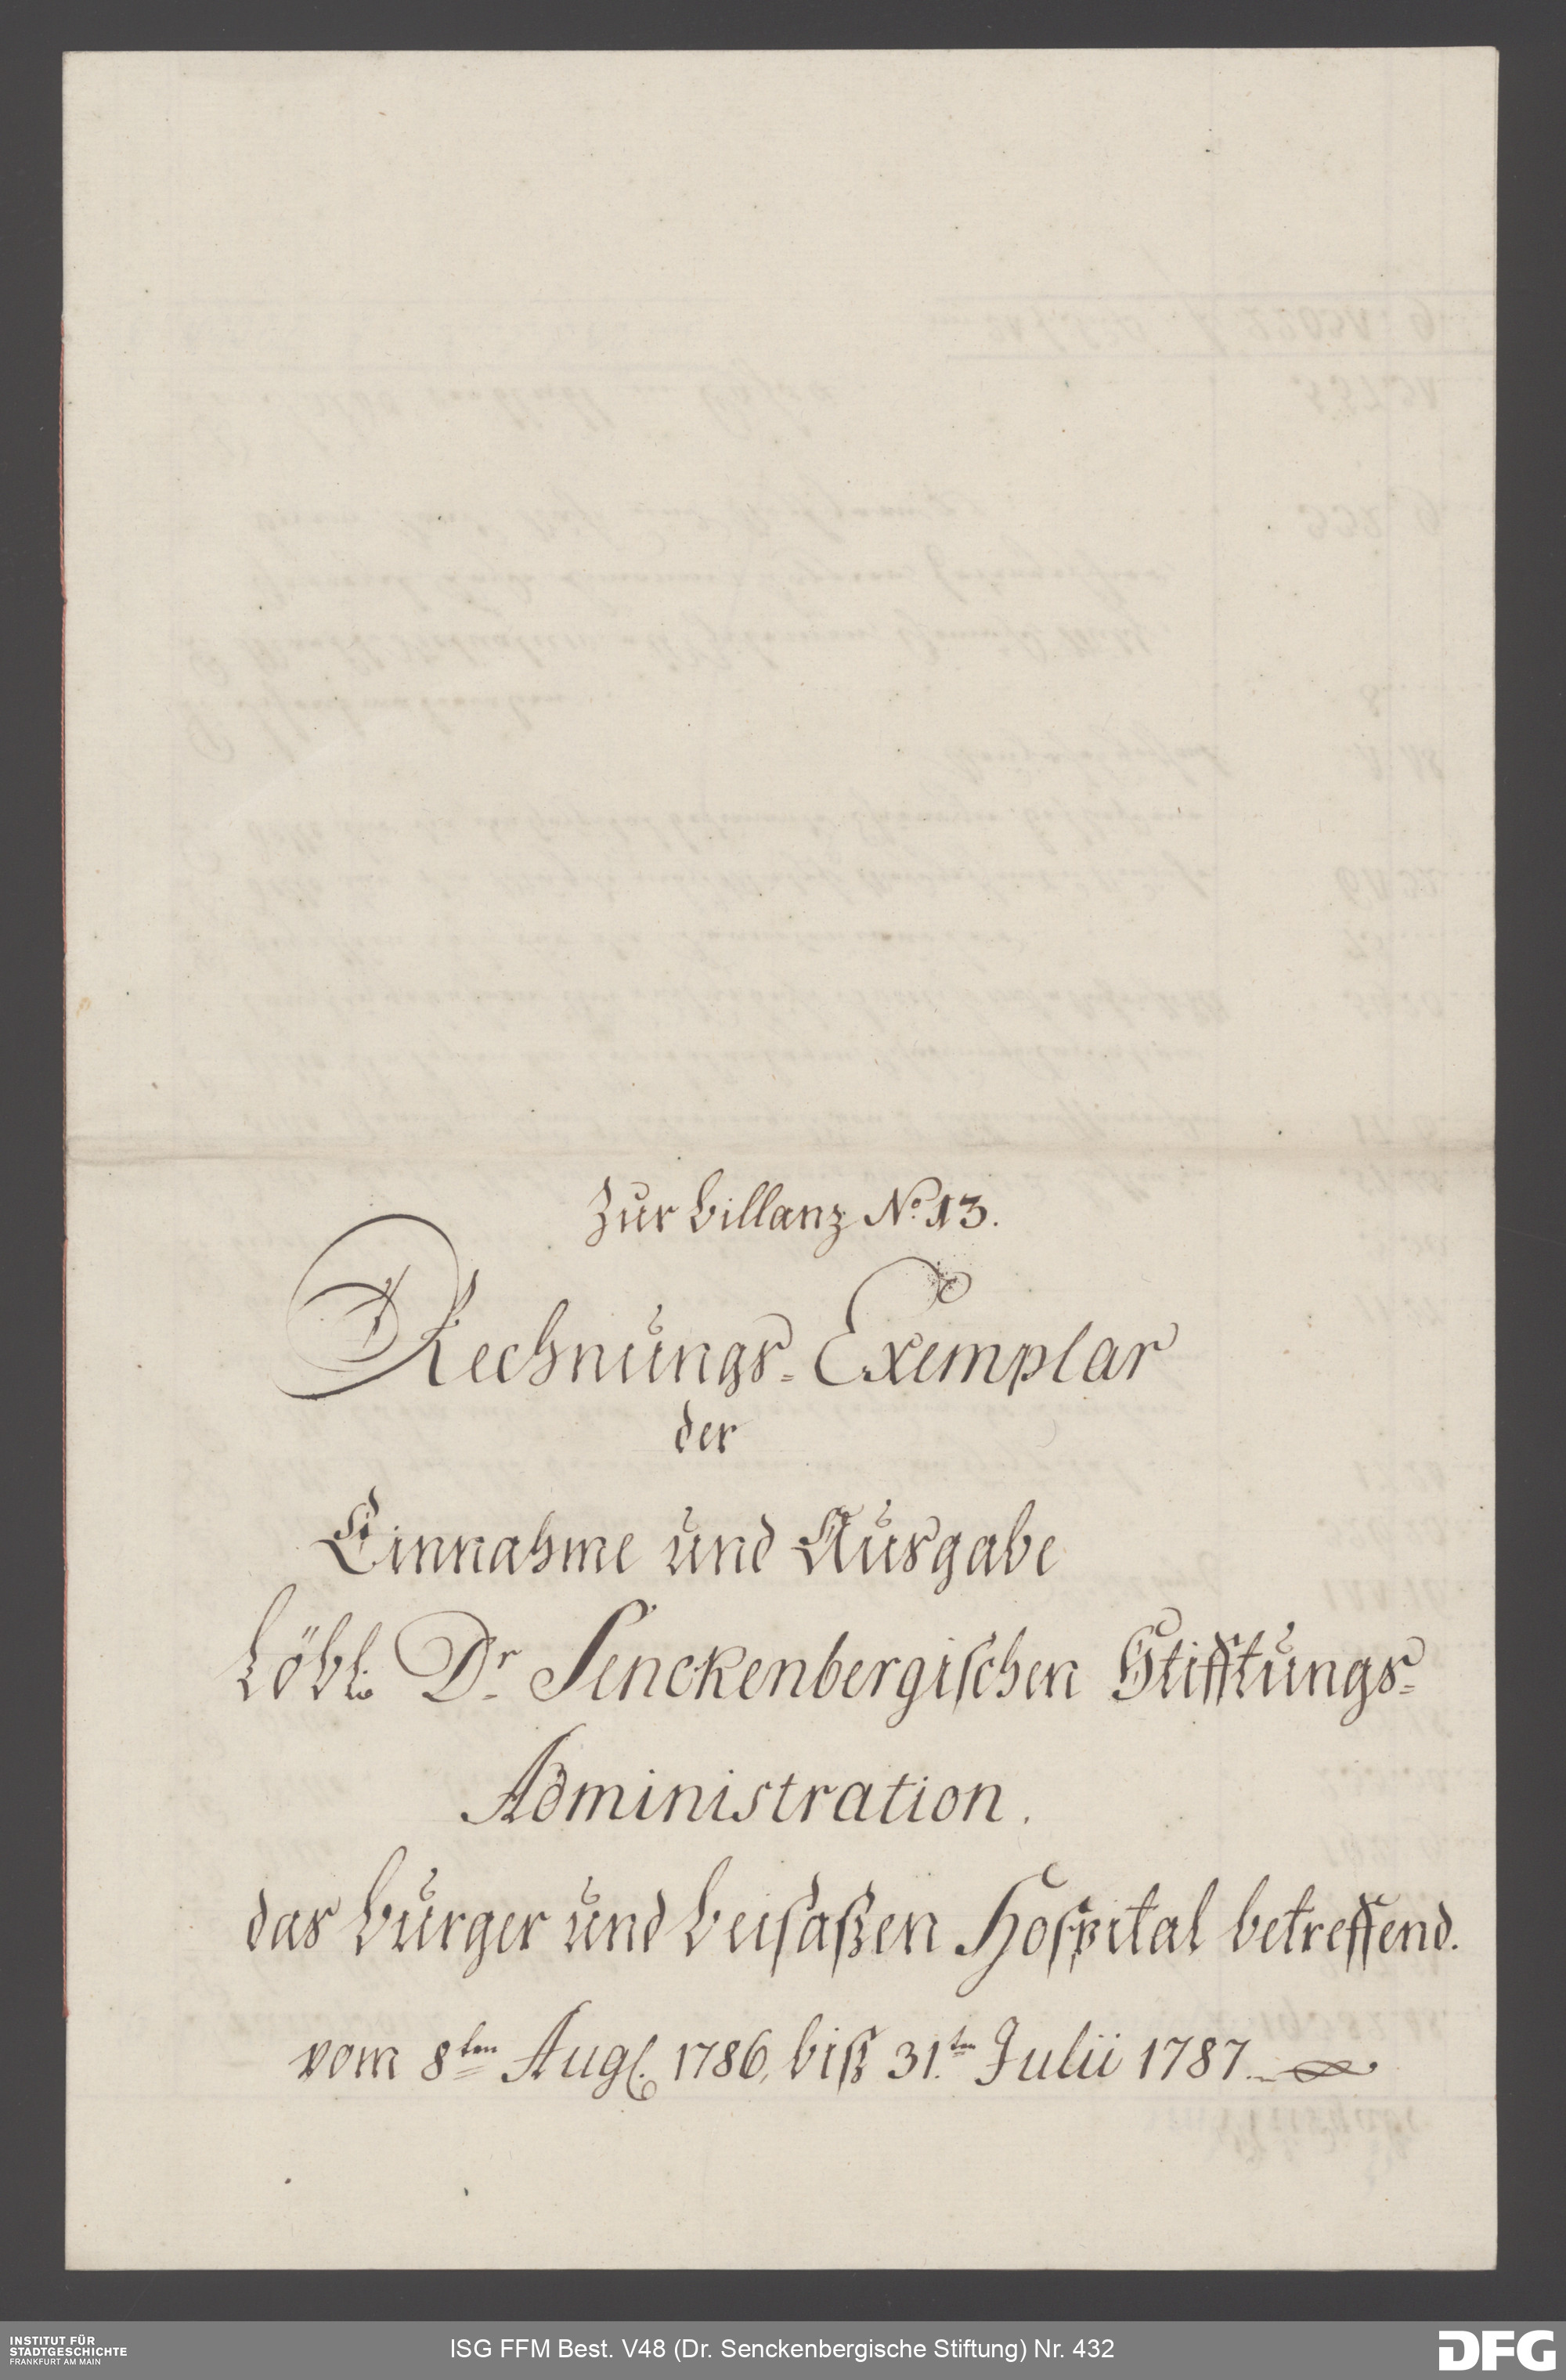 Zur Billanz No. 13.
Rechnungs-Exemplar
der
Einnahme und Ausgabe
Löbl. Dr. Senckenbergischen Stifftungs-
Administration.
das Burger und Beisaßen Hospital betreffend.
vom 8ten Augs. 1786, biß 31.ten Julii 1787.
INSTITUT FÜR
STADTGESCHICHTE
FRANKFURT AM MAIN
ISG FFM Best. V48 (Dr. Senckenbergische Stiftung) Nr. 432
DFG